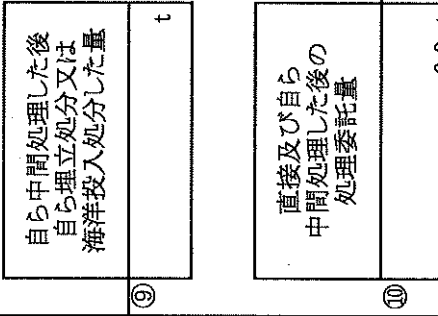 自ら中間処理した後
自ら埋立処分又は
海洋投入処分した量
⑨
t
直接及び自ら
中間処理した後の
処理委託量
⑩